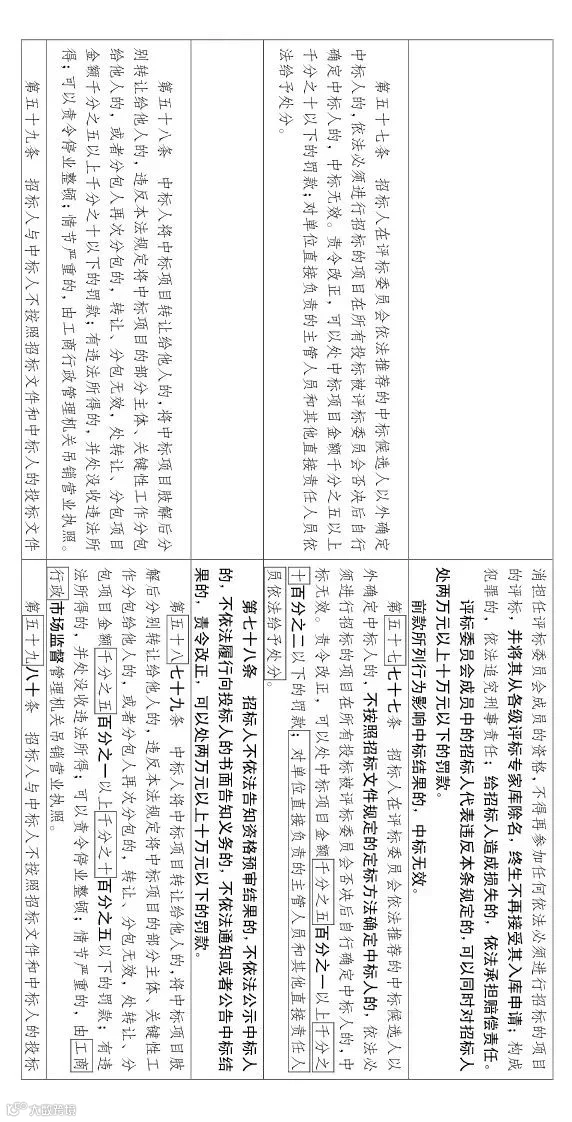 消担任评标委员会成员的资格，不得再参加任何依法必须进行招标的项目
的评标，并将其从各级评标专家库除名，终生不再接受其入库申请；构成
犯罪的，依法追究刑事责任；给招标人造成损失的，依法承担赔偿责任。
评标委员会成员中的招标人代表违反本条规定的，可以同时对招标人
处两万元以上十万元以下的罚款。
前款所列行为影响中标结果的，中标无效。
第五十七条　招标人在评标委员会依法推荐的中标候选人以外确定
中标人的，依法必须进行招标的项目在所有投标被评标委员会否决后自行
确定中标人的，中标无效。责令改正，可以处中标项目金额千分之五以上
千分之十以下的罚款；对单位直接负责的主管人员和其他直接责任人员依
法给予处分。
第五十七七十七条　招标人在评标委员会依法推荐的中标候选人以
外确定中标人的，不按照招标文件规定的定标方法确定中标人的，依法必
须进行招标的项目在所有投标被评标委员会否决后自行确定中标人的，中
标无效。责令改正，可以处中标项目金额千分之五百分之一以上千分之
十百分之二以下的罚款；对单位直接负责的主管人员和其他直接责任人
员依法给予处分。
第七十八条　招标人不依法告知资格预审结果的，不依法公示中标人
的，不依法履行向投标人的书面告知义务的，不依法通知或者公告中标结
果的，责令改正，可以处两万元以上十万元以下的罚款。
第五十八条　中标人将中标项目转让给他人的，将中标项目肢解后分
别转让给他人的，违反本法规定将中标项目的部分主体、关键性工作分包
给他人的，或者分包人再次分包的，转让、分包无效，处转让、分包项目
金额千分之五以上千分之十以下的罚款；有违法所得的，并处没收违法所
得；可以责令停业整顿；情节严重的，由工商行政管理机关吊销营业执照。
第五十八七十九条　中标人将中标项目转让给他人的，将中标项目肢
解后分别转让给他人的，违反本法规定将中标项目的部分主体、关键性工
作分包给他人的，或者分包人再次分包的，转让、分包无效，处转让、分
包项目金额千分之五百分之一以上千分之十百分之五以下的罚款；有违
法所得的，并处没收违法所得；可以责令停业整顿；情节严重的，由工商
行政市场监督管理机关吊销营业执照。
第五十九条　招标人与中标人不按照招标文件和中标人的投标文件
第五十九八十条　招标人与中标人不按照招标文件和中标人的投标